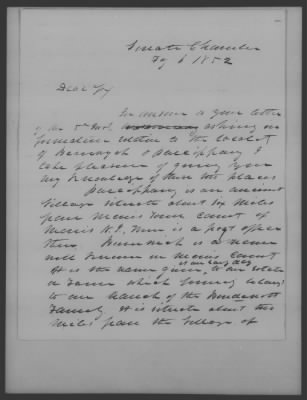 Senate Chamber
Fby 6 1852
Dear Sir
In answer to your letter
of the 5th Inst asking in
formation relative to the locality
of Burnwich & Parsippany I
take pleasure of giving you
my knowledge of these two places
Parsippany is an ancient
village situate about six miles
from Morris Town County of
Morris N.J. there is a post office
there is a name
well known in Morris County
at an early day
It is the name given to an estate
or farm which formerly belonged
to our branch of the
Family It is situate about two
miles from the village of